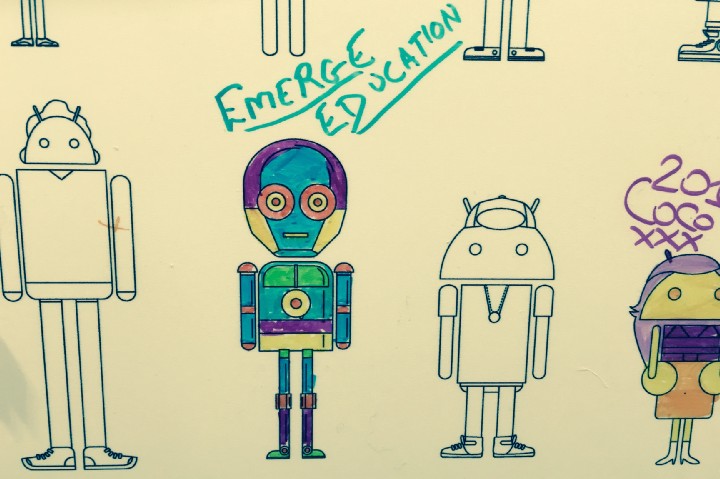 EMERGE
EDUCATION
COCO
XXX